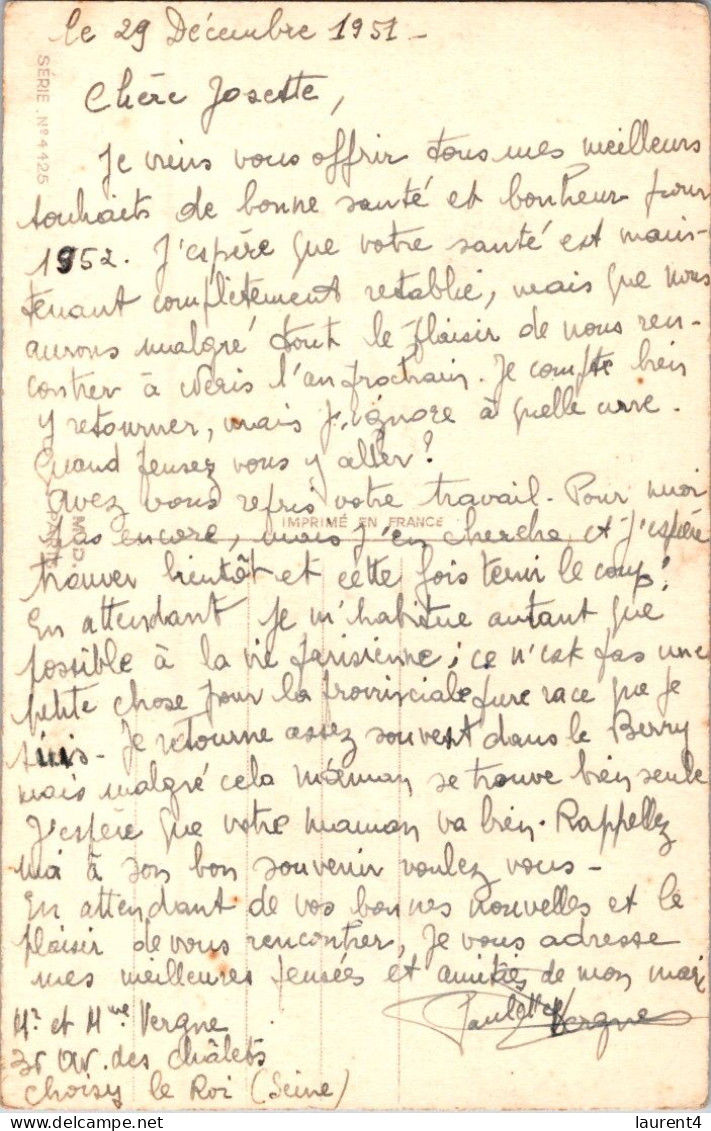 le 29 Décembre 1951 -
Chère Josette,
Je viens vous offrir tous mes meilleurs
souhaits de bonne santé et bonheur pour
1952. J'espère que votre santé est main-
tenant complètement retablie, mais que nous
aurons malgré tout le plaisir de nous ren-
contrer à Néris l'an prochain. Je compte bien
y retourner, mais j'ignore à quelle cure.
Quand pensez vous y aller?
Avez vous repris votre travail - Pour moi
pas encore, mais j'en cherche, et j'espère
trouver bientôt et cette fois tenir le coup!
En attendant je m'habitue autant que
possible à la vie parisienne; ce n'est pas une
petite chose pour la provinciale pure race que je
suis - Je retourne assez souvent dans le Berry
mais malgré cela maman se trouve bien seule
J'espère que votre maman va bien. Rappellez
moi à son bon souvenir voulez vous -
En attendant de vos bonnes nouvelles et le
plaisir de vous rencontrer, je vous adresse
mes meilleures pensées et amitiés de mon mari
Paulette Vergne
Mr et Mme Vergne
av. des châlets
Choisy le Roi (Seine)
SÉRIE. N° 4425
IMPRIMÉ EN FRANCE
M.D.
laurent4